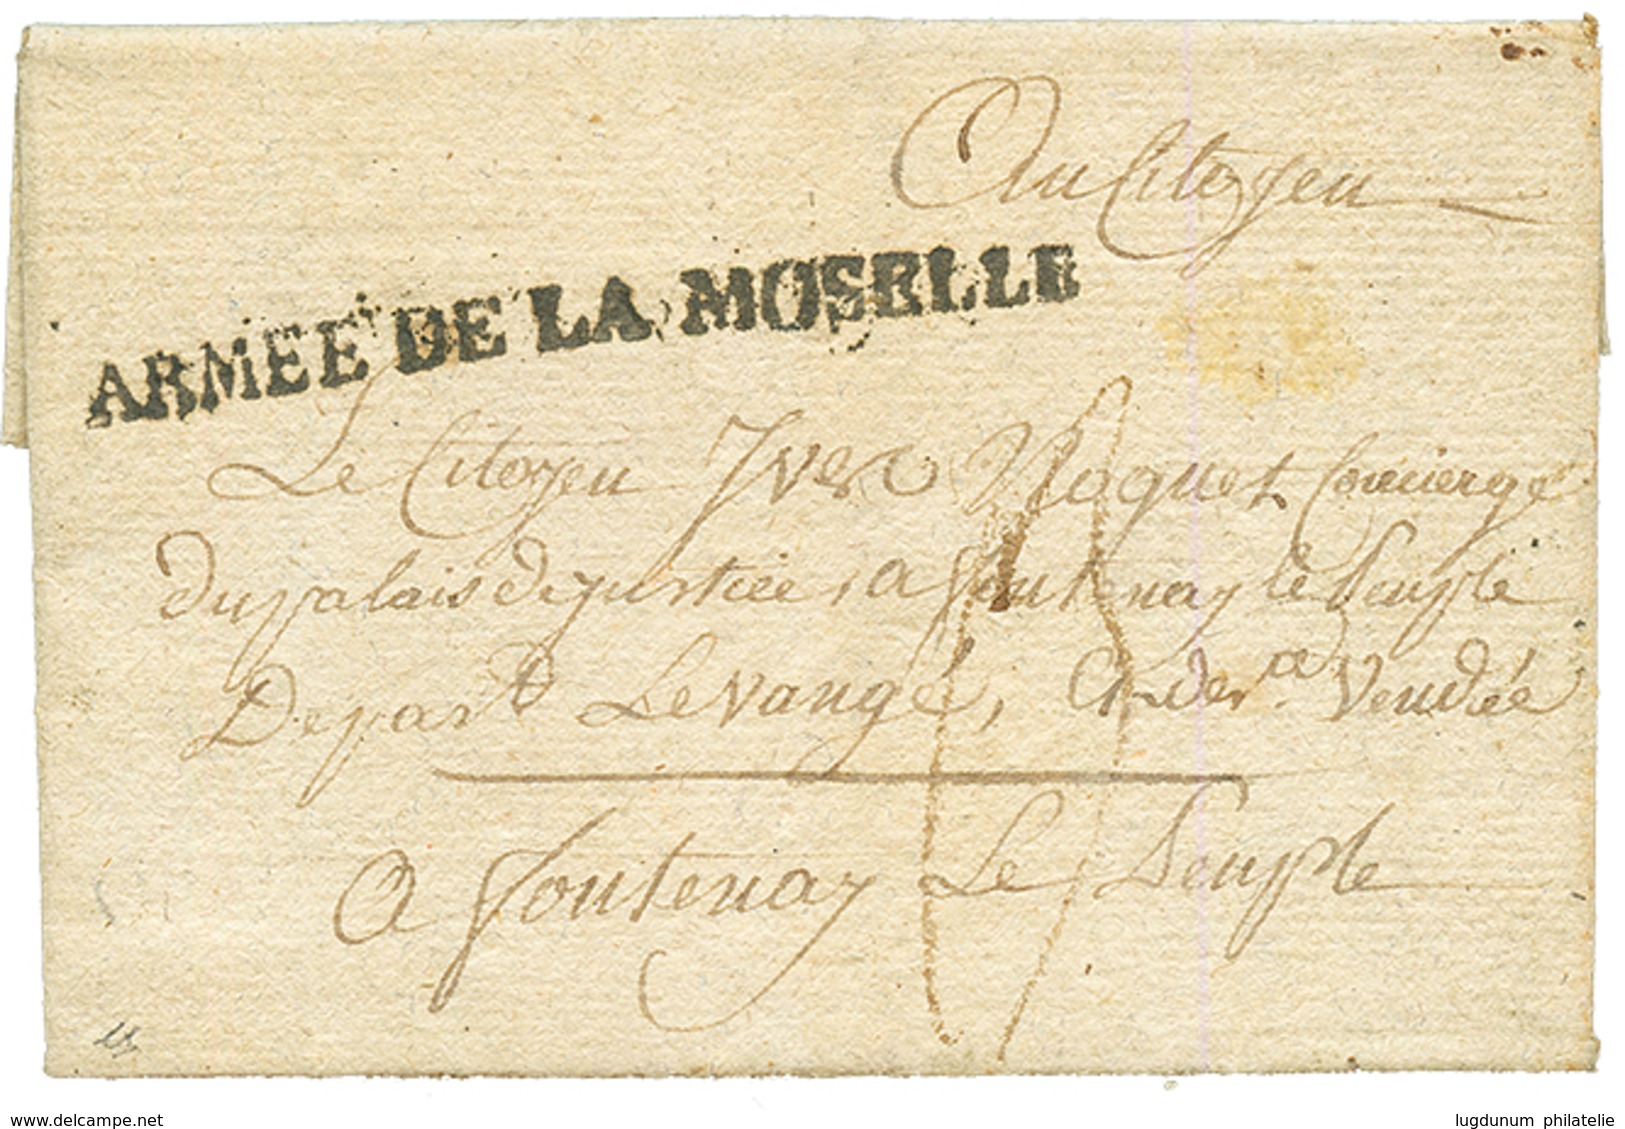 Au Citoyen
ARMEE DE LA MOSELLE
Le Citoyen Yves Noquet Concierge
Du palais de justice, a fontenay le peuple
Depart Le vangé, Vendée
A fontenay Le Peuple
www.delcampe.net
lugdunum philatelie